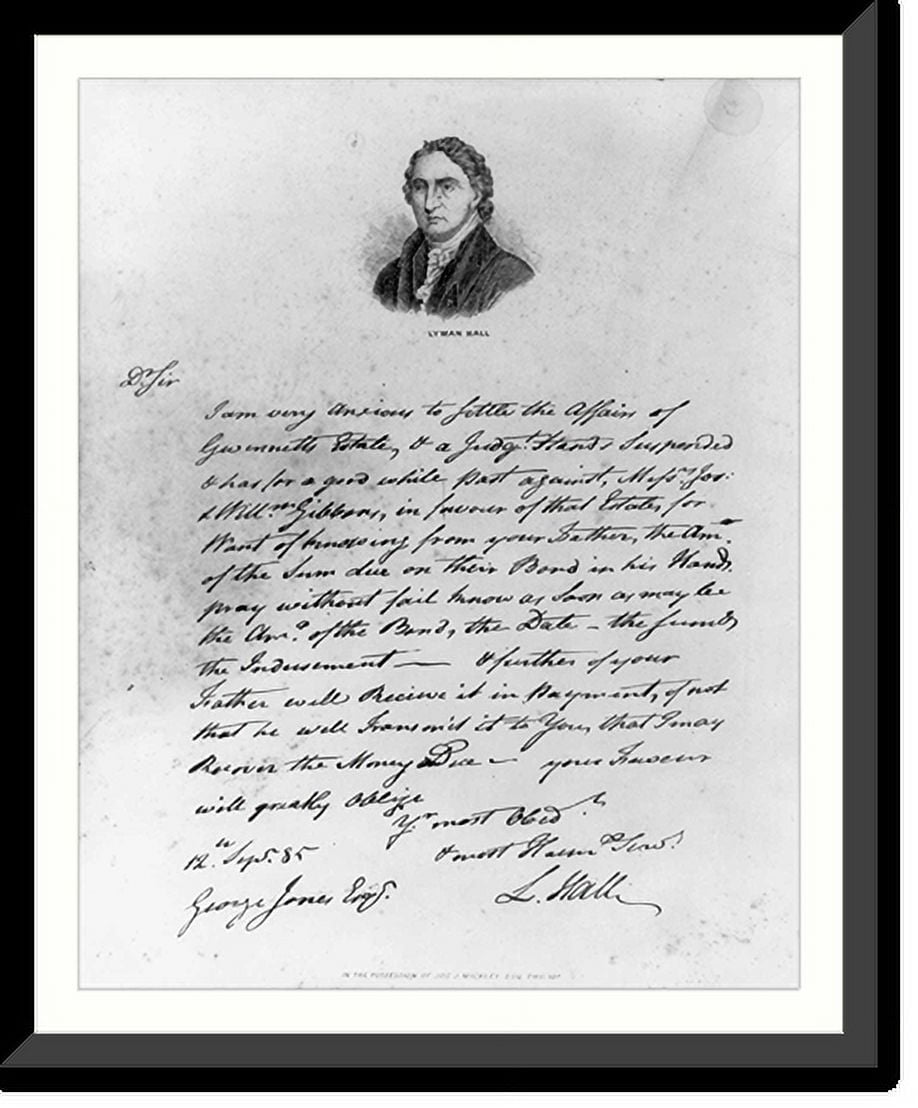 LYMAN HALL
Dr Sir
I am very Anxious to settle the Affairs of
Gwinnetts Estate, & a Judgt. Stands Suspended
& has for a good while past against, Messrs. Jos:
& Willm Gibbons, in favour of that Estate, for
Want of knowing from your Father, the Amt.
of the Sum due on their Bond in his Hands.
pray without fail know as soon as may be
the Amt. of the Bond, the Date - the Sum &
the Indorsement — & further if your
Father will Recieve it in Payment, if not
that he will Transmit it to You, that I may
Recover the Money Due - your
will greatly Oblige
Yr. most Obedt.
& most Humle Servt.
12th. Sepr. 85
George Jones Esqr.
L. Hall
IN THE POSSESSION OF